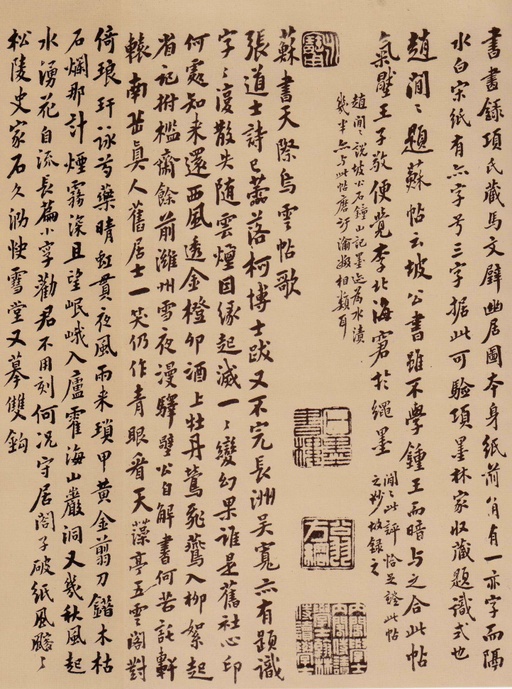 書畫錄項氏藏馬文璧幽居圖本身紙前角有一亦字而隔
水白宋紙有六字号三字據此可驗項墨林家收藏題識式也
趙閒〻題蘇帖云坡公書雖不學鍾王而暗与之合此帖
氣壓王子敬便覺李北海窘於繩墨
閒〻此評恰足證此帖
之妙故錄之
趙閒〻說坡公石鐘山記墨迹為水漬
幾半亦与此帖磨泐瀚海相類耳
蘇書天際烏雲帖歌
張道士詩已零落柯博士跋又不完長洲吳寬亦有題識
字〻復散失隨雲煙因緣起滅一〻變幻果誰是舊社心印
何處知来還西風透金橙卯酒上牡丹鴛飛鷺入柳絮起
省記拊檻齋餘前濰州雪夜漫驛壁公自解書何苦託軒
轅南岳真人舊居士一笑仍作青眼看天藻亭五雲閣對
倚琅玕詠芍藥晴虹貫夜風雨来瑣甲黄金翦刀錯木枯
石爛那計煙霧深且望岷峨入廬霍海山巖洞又幾秋風起
水湧花自流長篇小字勸君不用刻何況守居閤子破紙風颼〻
松陵史家石久泐快雪堂又摹雙鈎